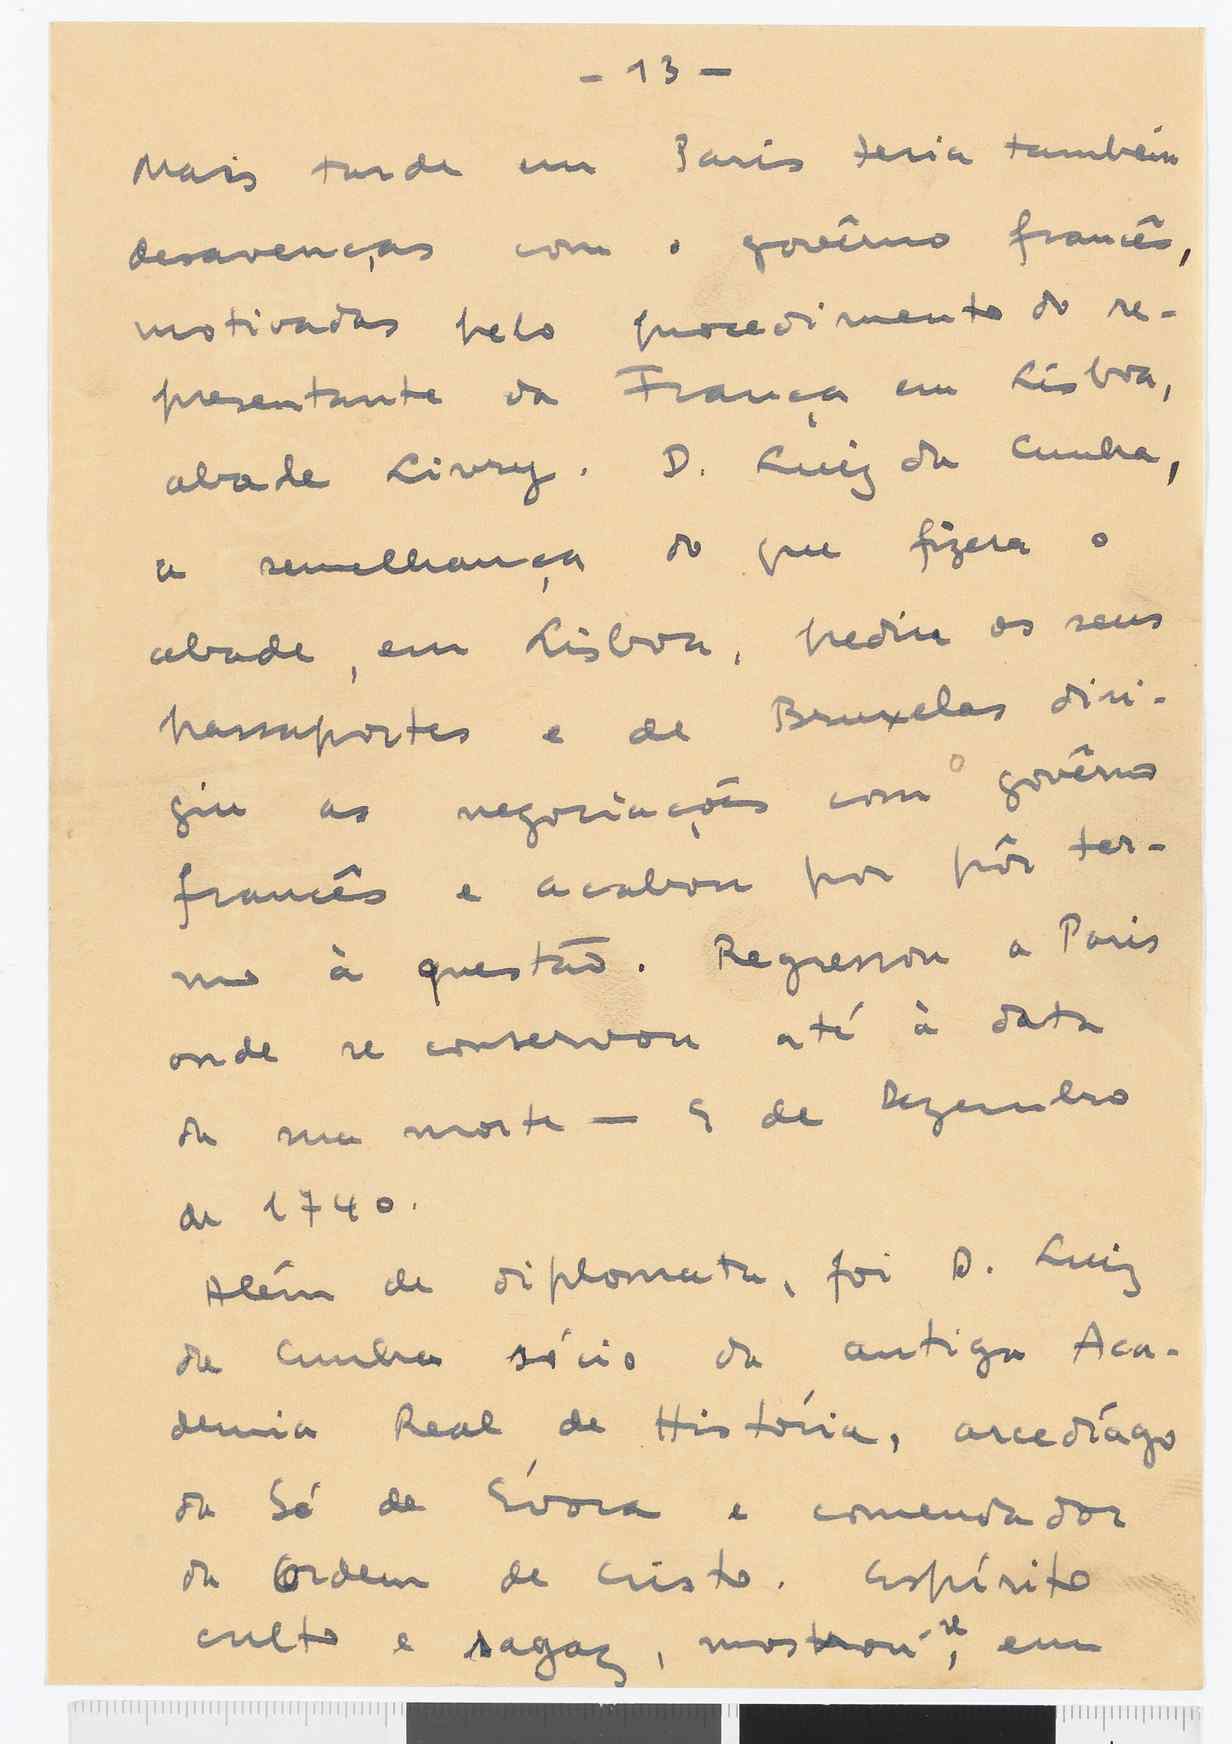 - 13 -
Mais tarde em Paris teria também
desavenças com o govêrno francês,
motivadas pelo procedimento do re-
presentante da França em Lisboa,
abade Livry. D. Luiz da Cunha,
a semelhança do que fizera o
abade, em Lisboa, pediu os seus
passaportes e de Bruxelas diri-
giu as negociações com o govêrno
francês e acabou por pôr ter-
mo à questão. Regressou a Paris
onde se conservou até à data
da sua morte — 9 de Dezembro
de 1740.
Além de diplomata, foi D. Luiz
da Cunha sócio da antiga Aca-
demia Real de História, arcediágo
da Sé de Évora e comendador
da Ordem de Cristo. Espírito
culto e sagaz, mostrou-se, em